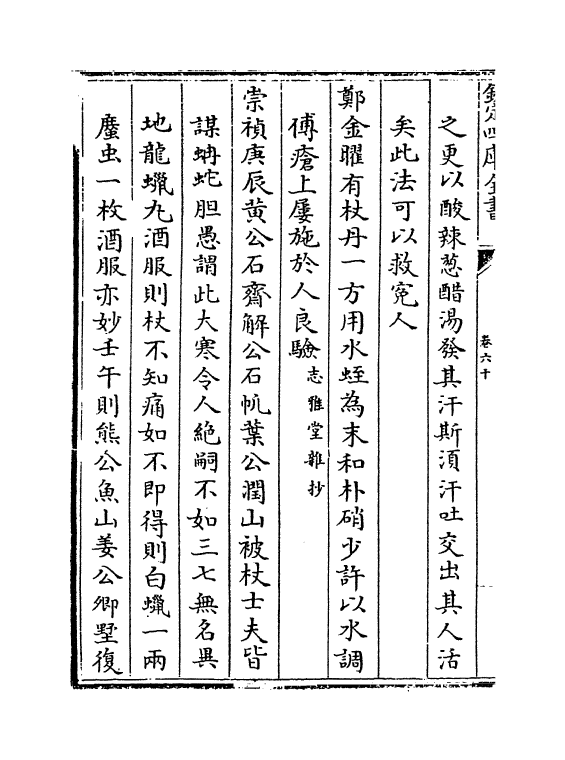 欽定四庫全書
卷六十
之更以酸辣葱醋湯發其汗斯湏汗吐交出其人活
矣此法可以救寃人
鄭金曜有杖丹一方用水蛭為末和朴硝少許以水調
傅瘡上屢施於人良驗志雅堂雜抄
崇禎庚辰黄公石齋解公石帆葉公潤山被杖士夫皆
謀蚺蛇胆愚謂此大寒令人絶嗣不如三七無名異
地龍蠟丸酒服則杖不知痛如不即得則白蠟一兩
䗪虫一枚酒服亦妙壬午則熊公魚山姜公卿墅復